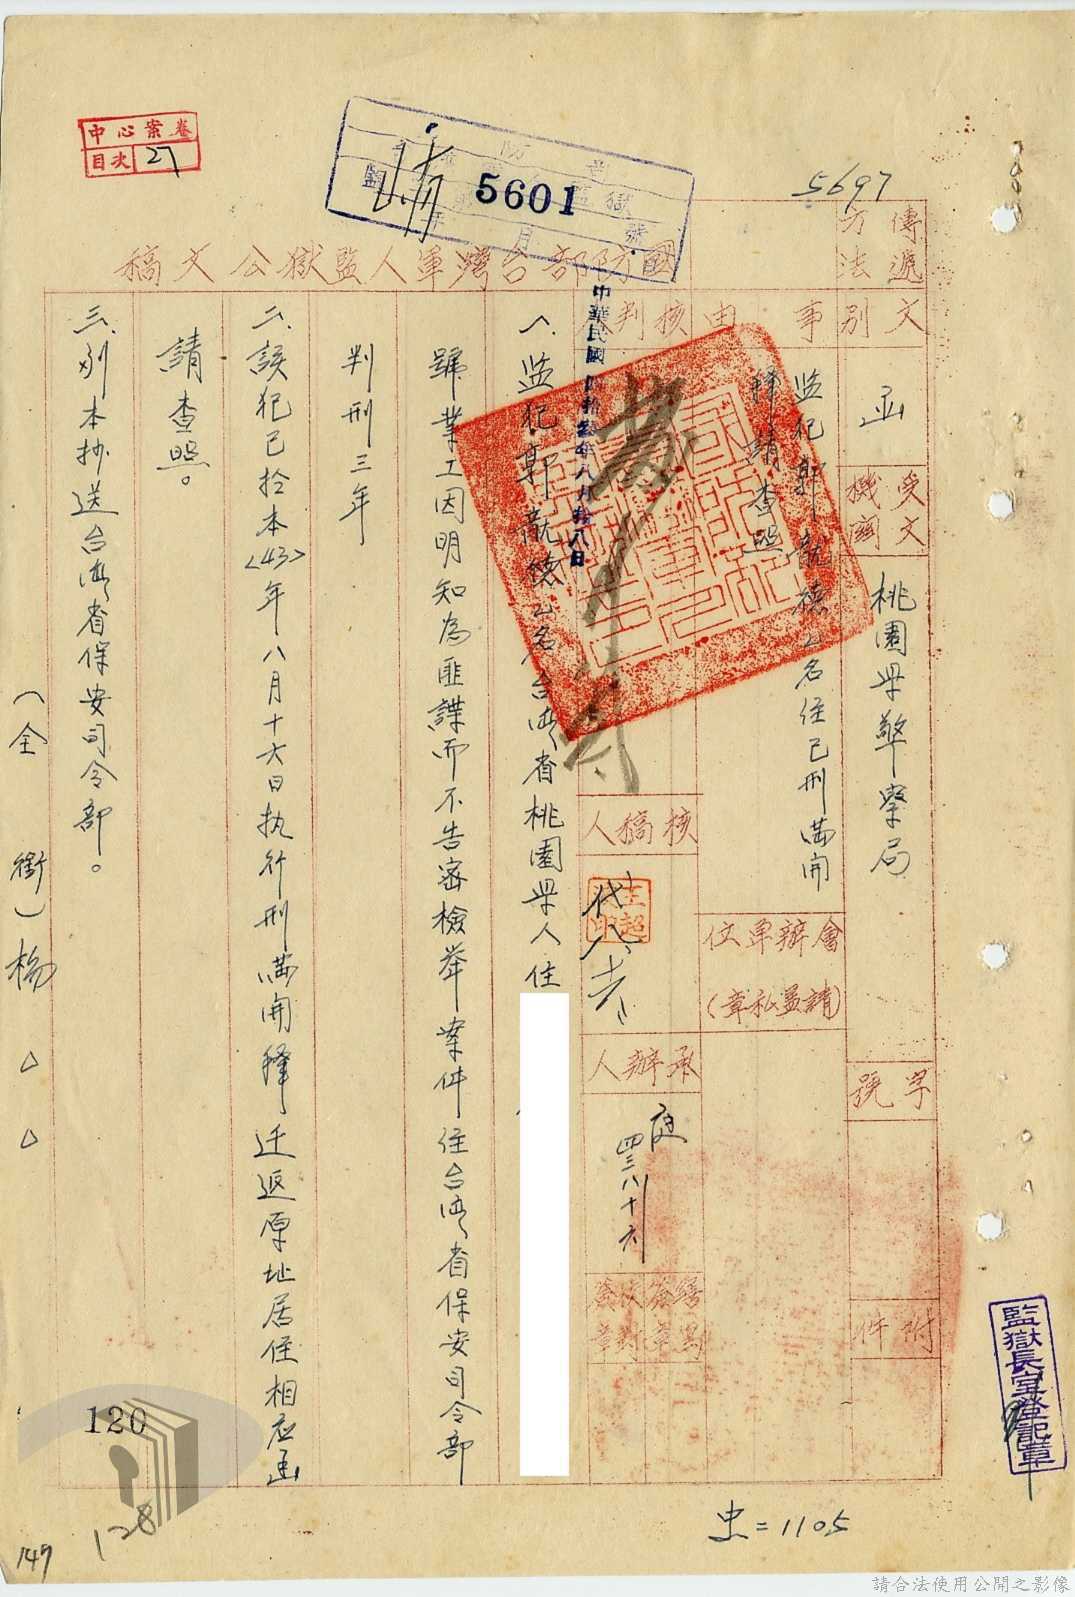 中心案卷
目次 27
5601
5697
國防部台灣軍人監獄公文稿
傳遞方法
文別
函
受文機關
桃園縣警察局
字號
附件
事由
監犯郭龍德乙名經已刑滿開
釋請查照
會辦單位
(請蓋私章)
核判
中華民國四拾叁年八月拾八日
核稿人
代
承辦人
庭
四三八十六
繕寫蓋章
校對蓋章
一、監犯郭龍德乙名台灣省桃園縣人住
號業工因明知為匪諜而不告密檢舉案件經台灣省保安司令部
判刑三年
二、該犯已於本〈43〉年八月十六日執行刑滿開釋迁返原址居住相應函
請查照。
三、副本抄送台灣省保安司令部。
(全銜)楊△△
監獄長室登記章
120
128
149
忠=1105
請合法使用公開之影像